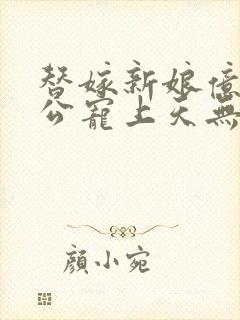 替嫁新娘億
公寵上天無
顏小宛